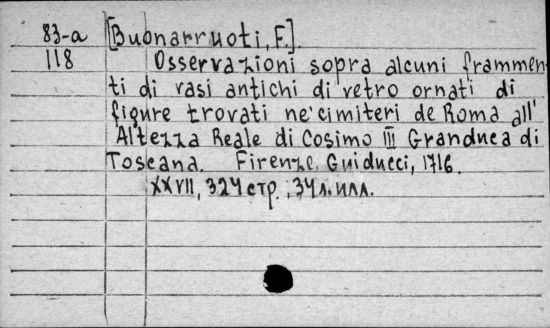 83-a [Buonarruoti, F.].
118 Osservazioni sopra alcuni frammen-
ti di vasi antichi di vetro ornati di
figure trovati ne'cimiteri de Roma all'
Altezza Reale di Cosimo III Granduca di
Toscana. Firenze, Guiducci, 1716.
XXVII, 324 стр.; 34 л. илл.